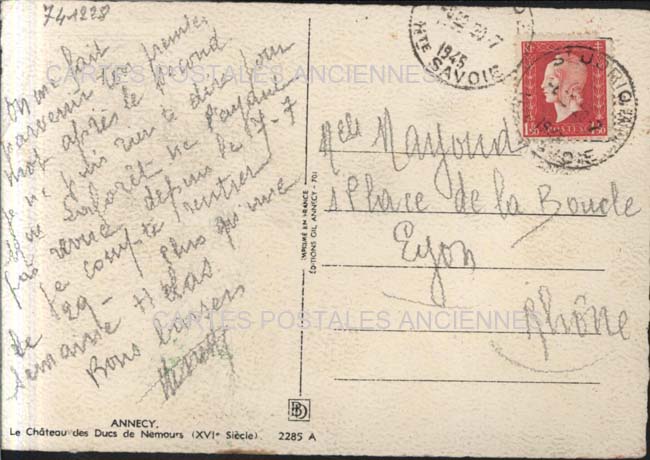 74-1228
On me fait
parvenir ton premier
mot après le second
Je n'ai su te dire pour
Sabarèt ne l'ayant
pas revue depuis le 7-7
Je compte rentrer
le 29 - plus qu'une
semaine Hélas
Bons baisers
ANNECY.
Le Château des Ducs de Nemours (XVIe Siècle). 2285 A
IMPRIMÉ EN FRANCE
ÉDITIONS GIL ANNECY - 701
1945
HTE SAVOIE
ST JORIO
SAVOIE
1f80 POSTES 1f80
Melle Mayoud
1 Place de la Boucle
Lyon
Rhône
CARTES POSTALES ANCIENNES
CARTES POSTALES ANCIENNES